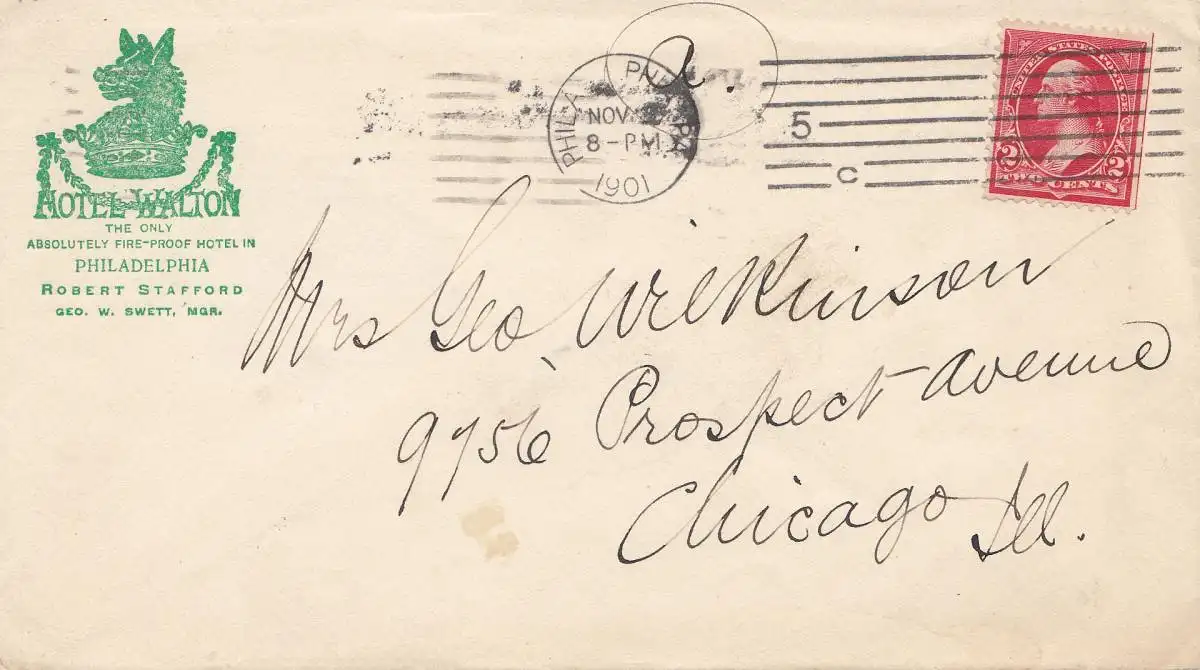 HOTEL WALTON
THE ONLY
ABSOLUTELY FIRE-PROOF HOTEL IN
PHILADELPHIA
ROBERT STAFFORD
GEO. W. SWETT, MGR.
a.
PHIL'A
NOV
8-PM
1901
5
C
UNITED STATES POSTAGE
2 2
TWO CENTS
Mrs Geo. Wilkinson
9756 Prospect Avenue
Chicago Ill.